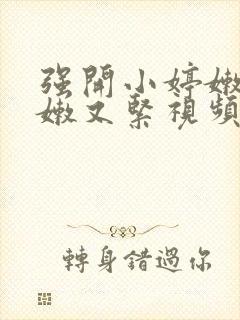 强開小婷嫩
嫩又緊視頻
轉身錯過你